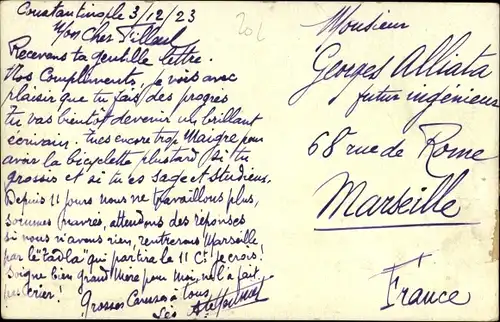 Constantinople 3/12/23
201
Mon Cher Filleul
Recevons ta gentille lettre.
Nos Compliments, je vois avec
plaisir que tu fais des progrès
tu vas bientôt devenir un brillant
écrivain. tu es encore trop Maigre pour
avoir la bicyclette plus tard si tu
grossis et si tu es sage et studieux.
Depuis 11 jours nous ne travaillons plus,
sommes navrés, attendons des réponses
si nous n'avons rien, rentrerons Marseille
par le "tadla" qui partira le 11 Ct je crois!
Soigne bien grand Mère pour Moi, ne l'a fait
pas crier!
Grosses Caresses à tous
Les
Monsieur
Georges Alliata
futur ingénieur
68 rue de Rome
Marseille
France